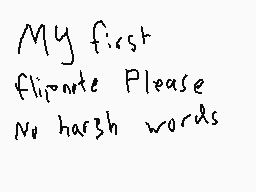 My first
flipnote Please
No harsh words